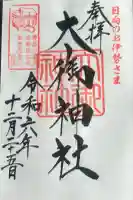 日向のお伊勢さま
奉拝
大御神社
令和六年
十二月二十五日